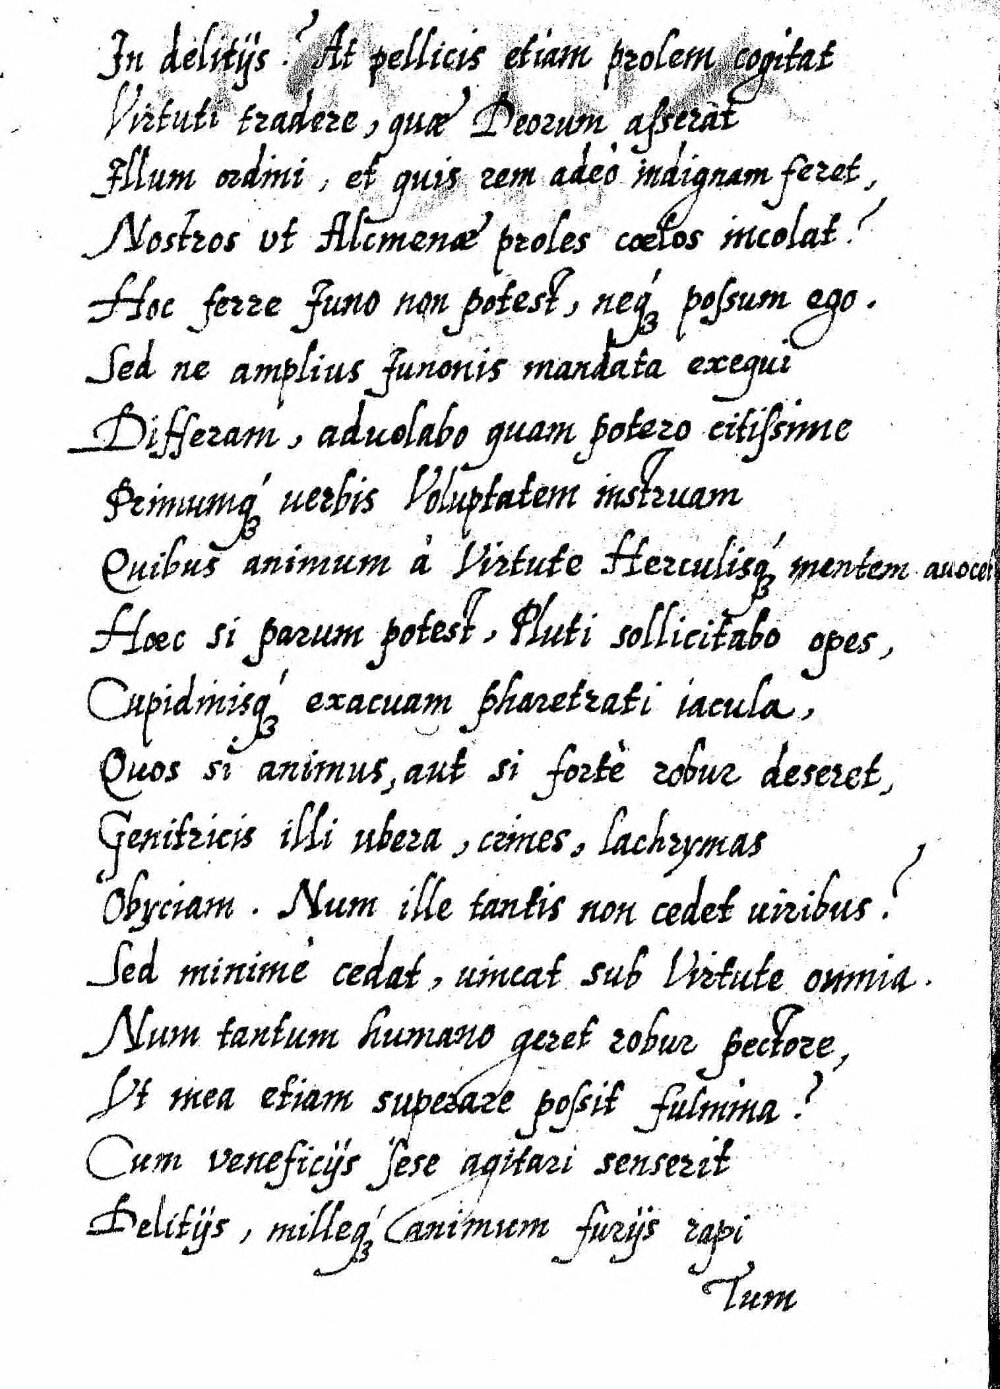 In delitijs? At pellicis etiam prolem cogitat
Virtuti tradere, quæ Deorum aſserat
Illum ordini, et quis rem adeò indignam feret,
Nostros vt Alcmenæ proles cœlos incolat?
Hoc ferre Juno non potest, neq́ꝫ poſsum ego.
Sed ne amplius Junonis mandata exequi
Differam, aduolabo quam potero citiſsime
Primumq́ꝫ uerbis Voluptatem instruam
Quibus animum à Virtute Herculisq́ꝫ mentem auocet
Hœc si parum potest, Pluti sollicitabo opes,
Cupidinisq́ꝫ exacuam pharetrati iacula,
Quos si animus, aut si fortè robur deseret,
Genitricis illi ubera, crines, lachrymas
Obyciam. Num ille tantis non cedet uiribus?
Sed minimè cedat, uincat sub Virtute omnia.
Num tantum humano geret robur pectore,
Vt mea etiam superare poſsit fulmina?
Cum veneficijs sese agitari senserit
Delitijs, milleq́ꝫ animum furijs rapi
Tum